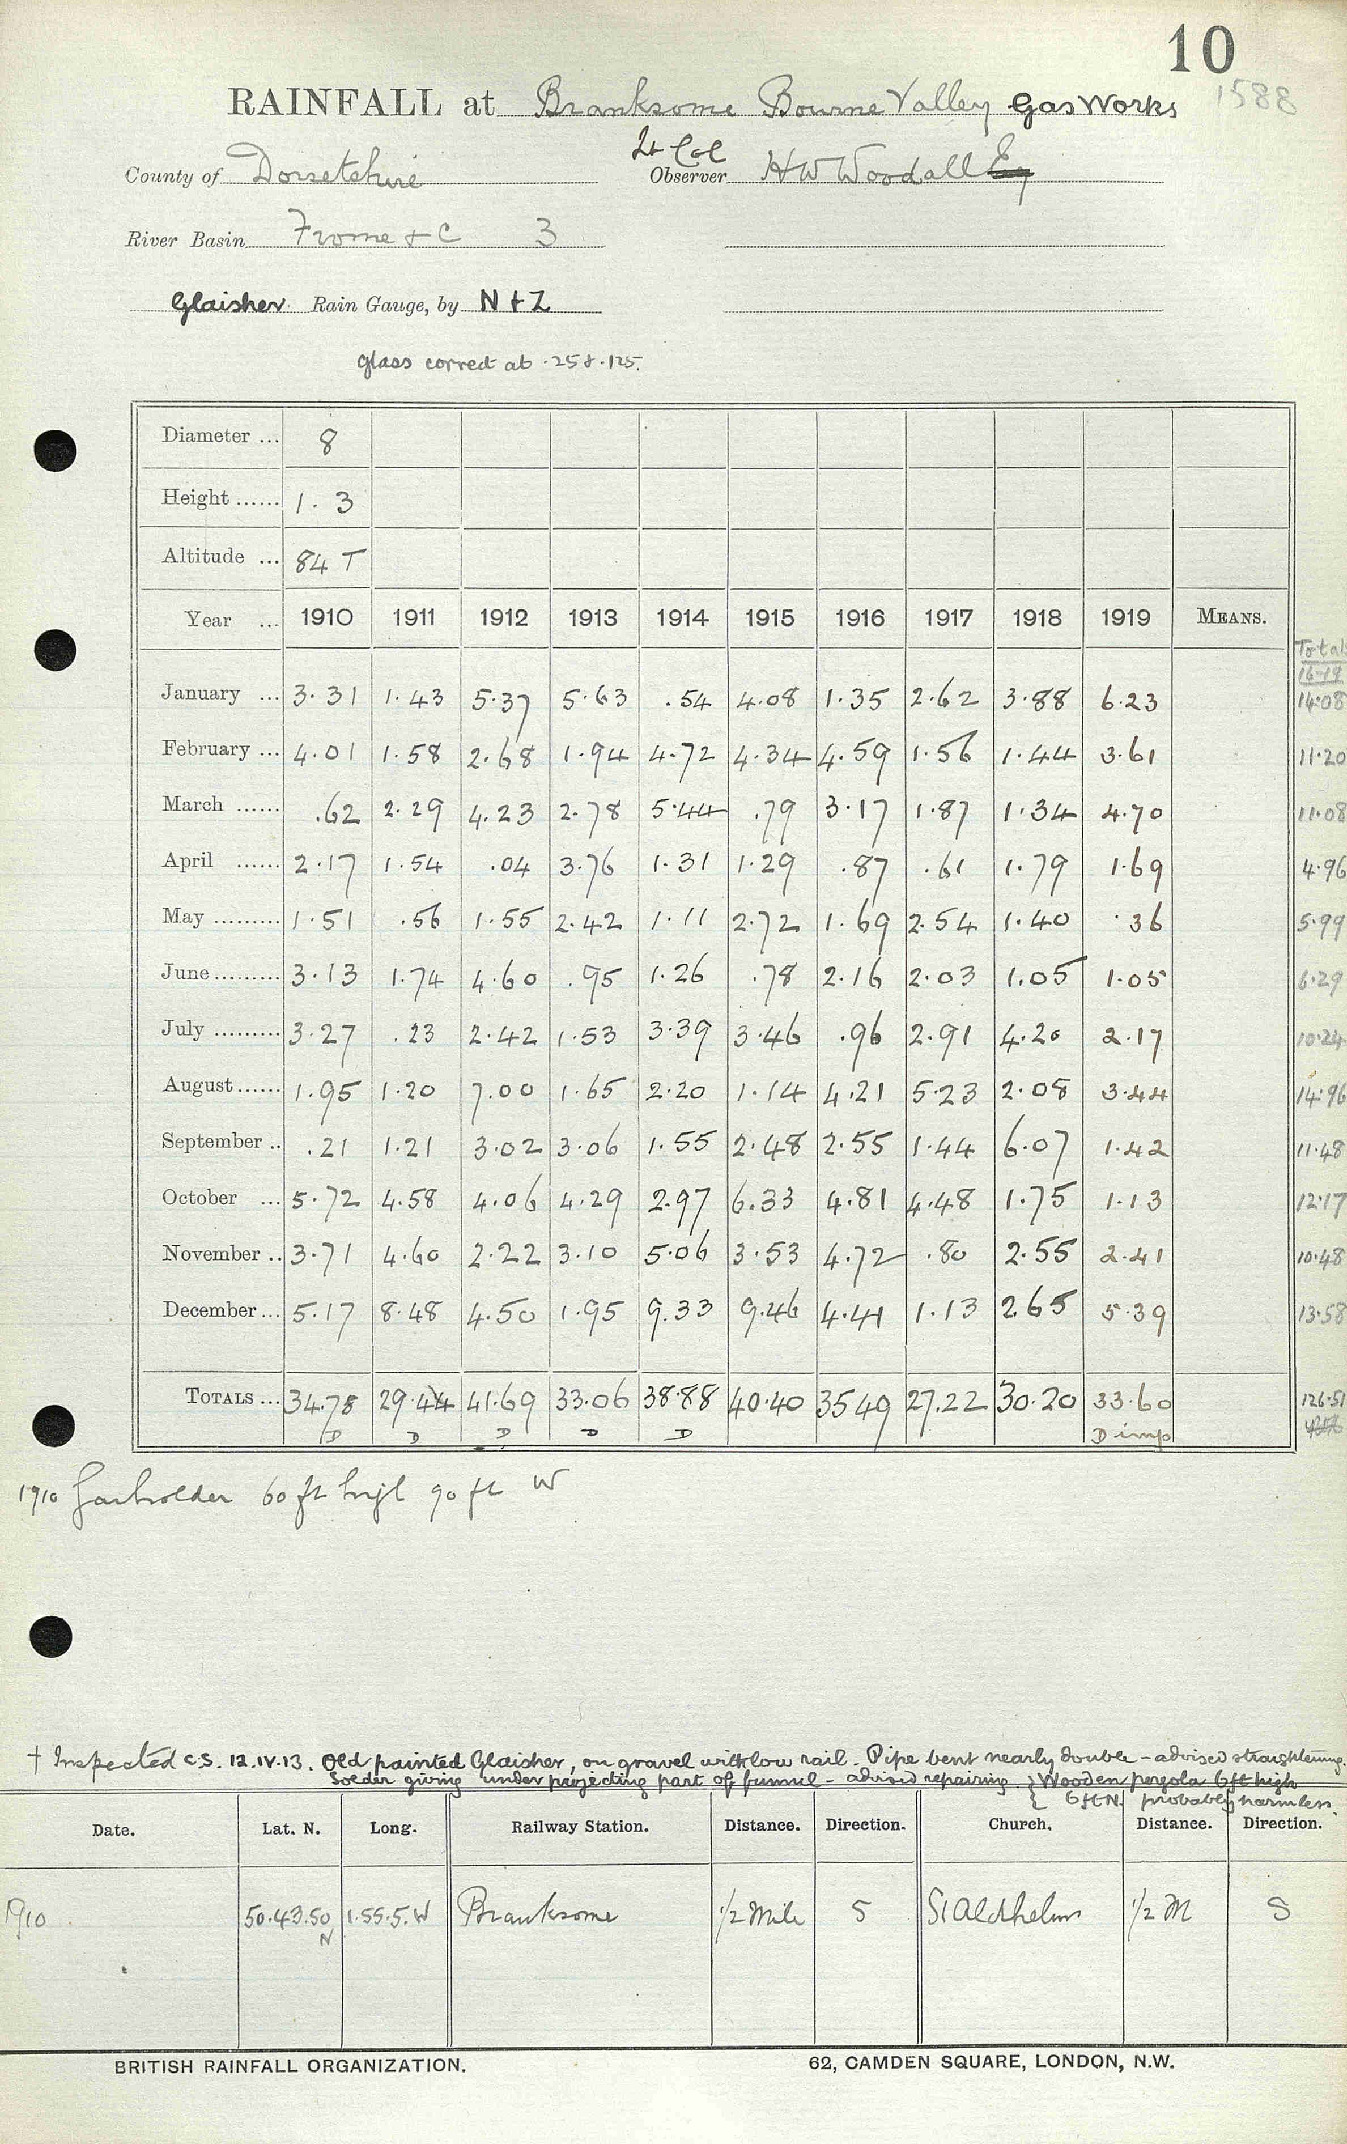 10
1588
RAINFALL at Branksome Bourne Valley Gas Works
Lt Col
County of Dorsetshire Observer H W Woodall Esq
River Basin Frome & C 3
Glaisher Rain Gauge, by N & Z
glass correct at .25 & .125.
Diameter ... 8
Height ...... 1. 3
Altitude ... 84 T
Year ... 1910 1911 1912 1913 1914 1915 1916 1917 1918 1919 MEANS.
Total
16-19
January ... 3.31 1.43 5.37 5.63 .54 4.08 1.35 2.62 3.88 6.23 14.08
February ... 4.01 1.58 2.68 1.94 4.72 4.34 4.59 1.56 1.44 3.61 11.20
March ...... .62 2.29 4.23 2.78 5.44 .79 3.17 1.87 1.34 4.70 11.08
April ...... 2.17 1.54 .04 3.76 1.31 1.29 .87 .61 1.79 1.69 4.96
May ......... 1.51 .56 1.55 2.42 1.11 2.72 1.69 2.54 1.40 .36 5.99
June ......... 3.13 1.74 4.60 .95 1.26 .78 2.16 2.03 1.05 1.05 6.29
July ......... 3.27 .23 2.42 1.53 3.39 3.46 .96 2.91 4.20 2.17 10.24
August ...... 1.95 1.20 7.00 1.65 2.20 1.14 4.21 5.23 2.08 3.44 14.96
September .. .21 1.21 3.02 3.06 1.55 2.48 2.55 1.44 6.07 1.42 11.48
October ... 5.72 4.58 4.06 4.29 2.97 6.33 4.81 4.48 1.75 1.13 12.17
November .. 3.71 4.60 2.22 3.10 5.06 3.53 4.72 .80 2.55 2.41 10.48
December ... 5.17 8.48 4.50 1.95 9.33 9.46 4.41 1.13 2.65 5.39 13.58
TOTALS ... 34.78 29.44 41.69 33.06 38.88 40.40 35.49 27.22 30.20 33.60 126.51
D D D D D D imp
1910 Gasholder 60 ft high 90 ft W
† Inspected C.S. 12.IV.13. Old painted Glaisher, on gravel with low rail - Pipe bent nearly double - advised straightening.
Solder giving under projecting part of funnel - advised repairing. } Wooden pergola 6ft high
{ 6ft N. probably harmless.
Date. Lat. N. Long. Railway Station. Distance. Direction. Church. Distance. Direction.
1910 50.43.50 N 1.55.5.W Branksome 1/2 Mile S St Aldhelms 1/2 M S
BRITISH RAINFALL ORGANIZATION. 62, CAMDEN SQUARE, LONDON, N.W.